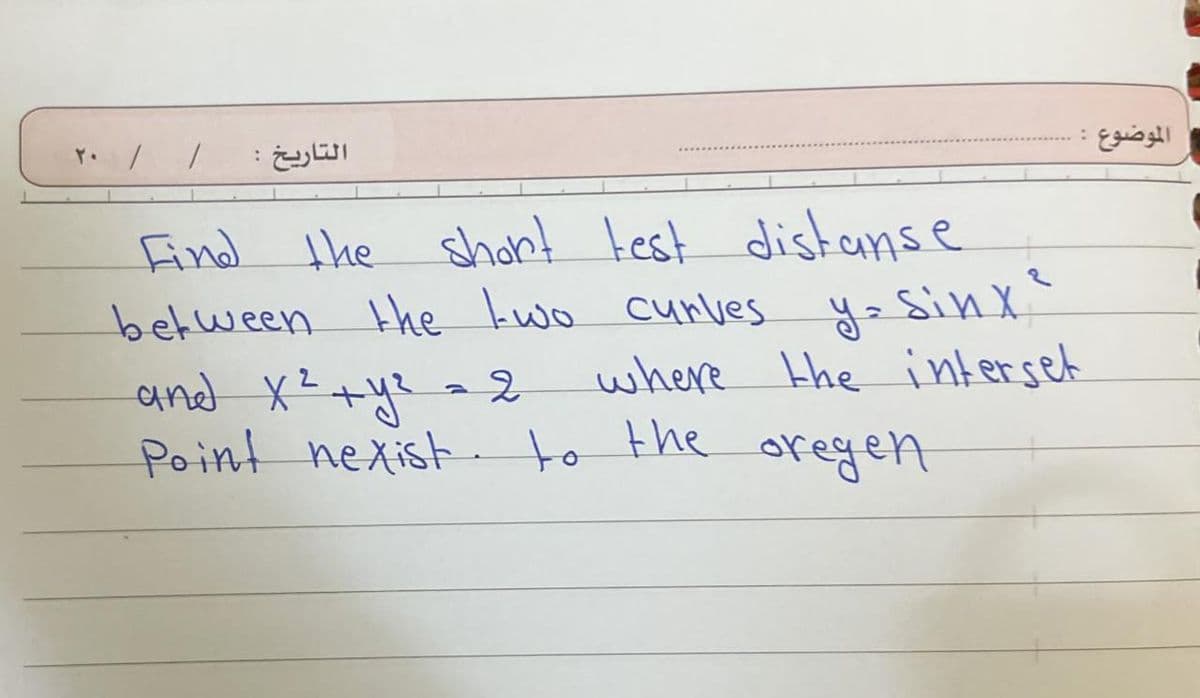 الموضوع : التاريخ : / / ٢٠
Find the short test distanse
between the two curves y = sin x²
and x² + y² = 2 where the interset
Point nexist. to the oregen